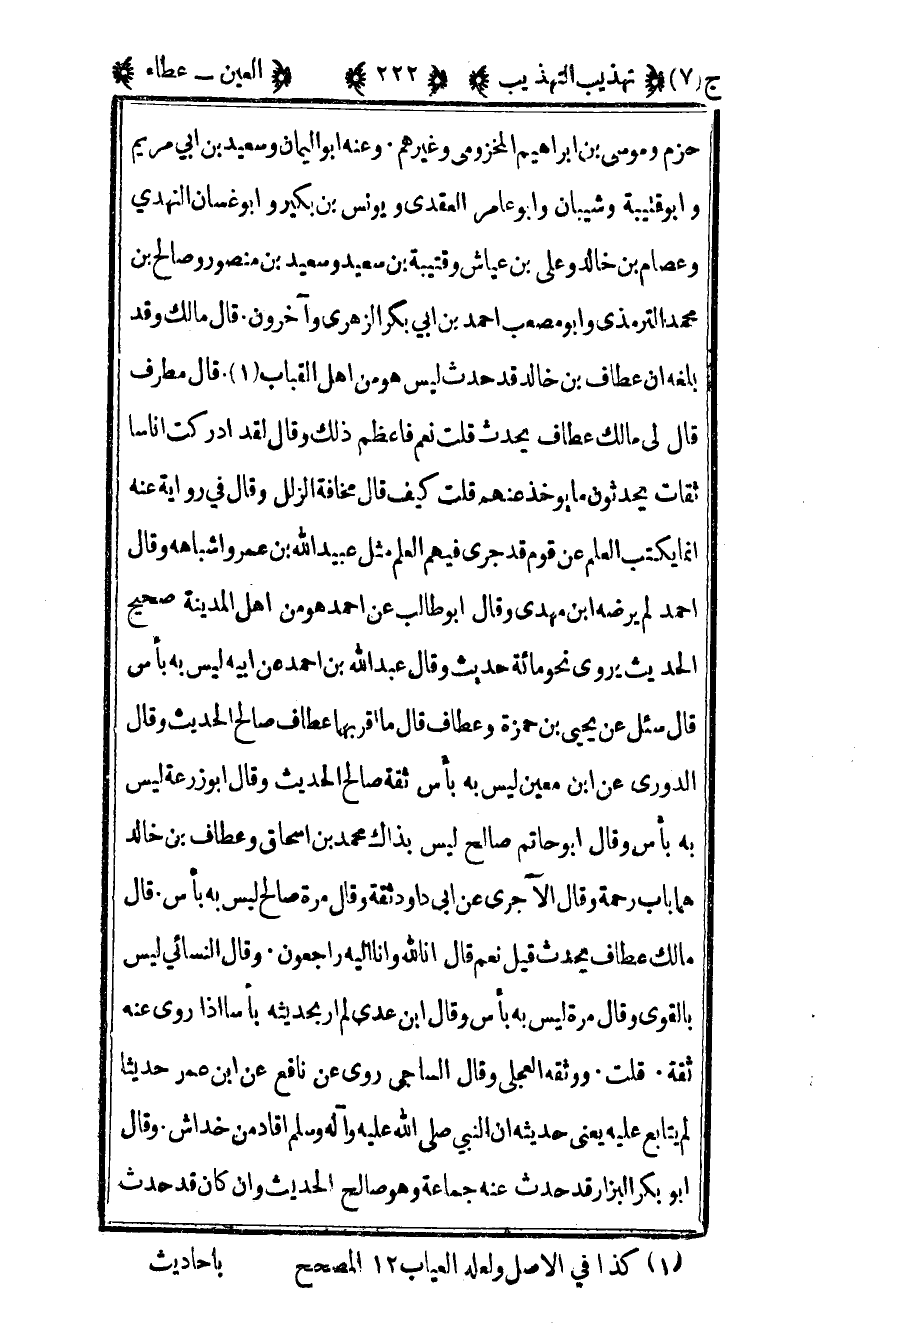 ج (٧) ﴿ تهذيب التهذيب ﴾ ﴿ ٢٢٢ ﴾ ﴿ العين ــ عطاء ﴾
حزم وموسى بن ابراهيم المخزومى وغيرهم ٠ وعنه ابواليمان وسعيد بن ابي مريم
و ابوقتيبة وشيبان وابوعامر العقدى و يونس بن بكير و ابوغسان النهدي
وعصام بن خالد وعلى بن عياش وقتيبة بن سعيد وسعيد بن منصور وصالح بن
محمد الترمذى وابو مصعب احمد بن ابي بكر الزهرى وآخرون ٠ قال مالك وقد
بلغه ان عطاف بن خالد قد حدث ليس هو من اهل القباب (١) ٠ قال مطرف
قال لى مالك عطاف يحدث قلت نعم فاعظم ذلك وقال لقد ادركت اناسا
ثقات يحدثون ما يوخذ عنهم قلت كيف قال مخافة الزلل وقال في رواية عنه
انما يكتب العلم عن قوم قد جرى فيهم العلم مثل عبيد الله بن عمر واشباهه وقال
احمد لم يرضه ابن مهدى وقال ابو طالب عن احمد هو من اهل المدينة صحيح
الحديث يروى نحو مائة حديث وقال عبد الله بن احمد عن ابيه ليس به بأس
قال سئل عن يحيى بن حمزة وعطاف قال ما اقربهما عطاف صالح الحديث وقال
الدورى عن ابن معين ليس به بأس ثقة صالح الحديث وقال ابوزرعة ليس
به بأس وقال ابوحاتم صالح ليس بذاك محمد بن اسحاق وعطاف بن خالد
هما باب رحمة وقال الآجرى عن ابى داود ثقة وقال مرة صالح ليس به بأس ٠ قال
مالك عطاف يحدث قيل نعم قال انالله وانااليه راجعون ٠ وقال النسائي ليس
بالقوى وقال مرة ليس به بأس وقال ابن عدي لم ار بحديثه بأسا اذا روى عنه
ثقة ٠ قلت ٠ ووثقه العجلى وقال الساجى روى عن نافع عن ابن عمر حديثا
لم يتابع عليه يعنى حديثه ان النبي صلى الله عليه وآله وسلم اقاد من خداش ٠ وقال
ابو بكر البزار قد حدث عنه جماعة وهو صالح الحديث وان كان قد حدث
(١) كذا في الاصل ولعله العياب ١٢ المصحح باحاديث